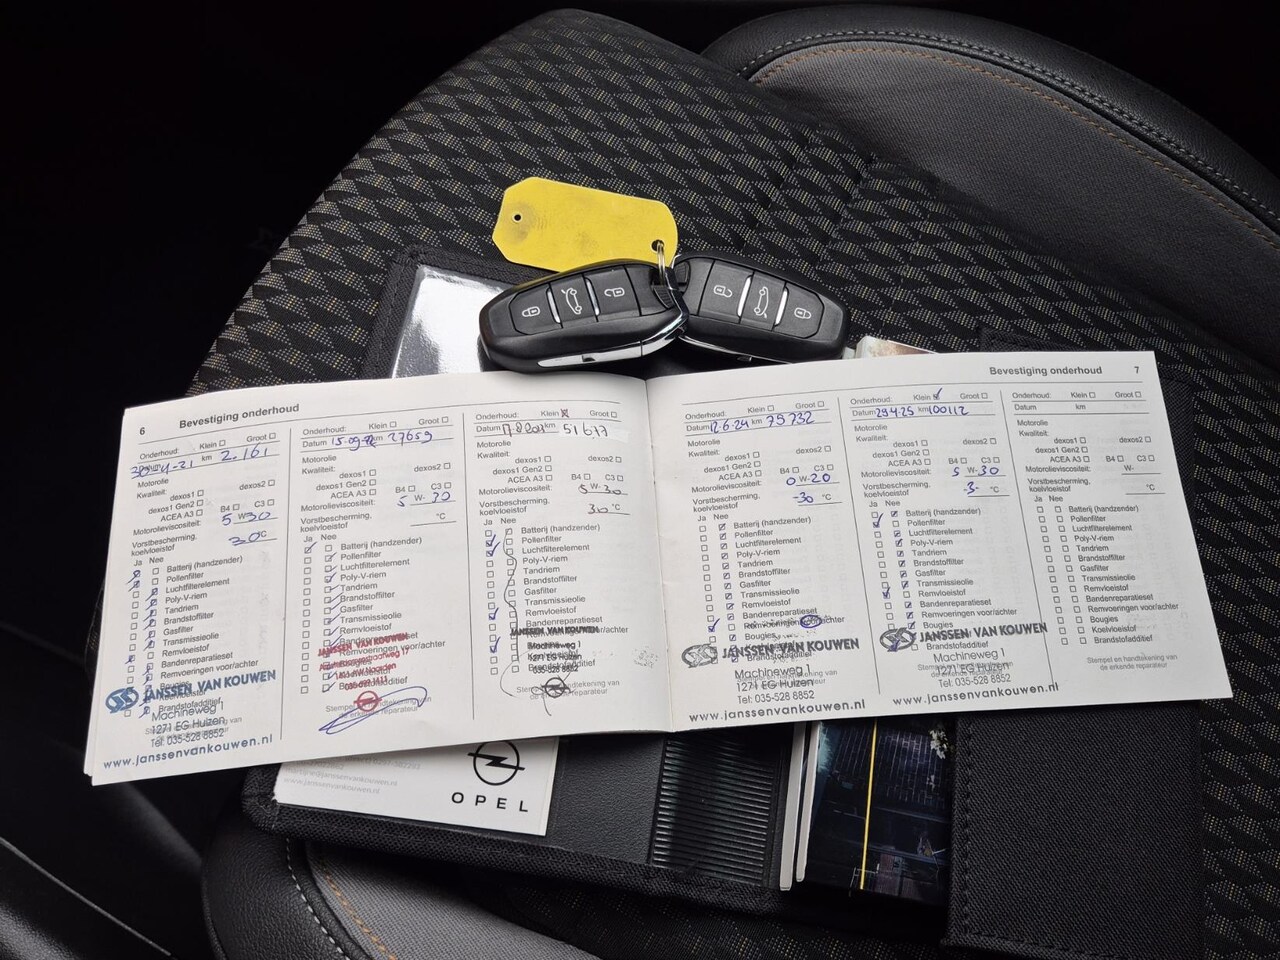 6 Bevestiging onderhoud
Onderhoud: Klein Groot
km 2.161
Motorolie
Kwaliteit:
dexos1 dexos2
dexos1 Gen2
ACEA A3 B4 C3
Motorolieviscositeit: 5 W 30
Vorstbescherming,
koelvloeistof 30 °C
Ja Nee
Batterij (handzender)
Pollenfilter
Luchtfilterelement
Poly-V-riem
Tandriem
Brandstoffilter
Gasfilter
Transmissieolie
Remvloeistof
Bandenreparatieset
Remvoeringen voor/achter
Brandstofadditief
JANSSEN VAN KOUWEN
Machineweg 1
1271 EG Huizen
Tel: 035-528 8852
www.janssenvankouwen.nl
Onderhoud: Klein Groot
Datum 15-09 km 27659
Motorolie
Kwaliteit:
dexos1 dexos2
dexos1 Gen2
ACEA A3 B4 C3
Motorolieviscositeit: 5 W- 30
Vorstbescherming,
koelvloeistof °C
Ja Nee
Batterij (handzender)
Pollenfilter
Luchtfilterelement
Poly-V-riem
Tandriem
Brandstoffilter
Gasfilter
Transmissieolie
Remvloeistof
Bandenreparatieset
JANSSEN VAN KOUWEN
Brandstofadditief
Stempel en handtekening van
de erkende reparateur
Onderhoud: Klein Groot
Datum km 51677
Motorolie
Kwaliteit:
dexos1 dexos2
dexos1 Gen2
ACEA A3 B4 C3
Motorolieviscositeit: 5 W- 30
Vorstbescherming,
koelvloeistof 30 °C
Ja Nee
Batterij (handzender)
Pollenfilter
Luchtfilterelement
Poly-V-riem
Tandriem
Brandstoffilter
Gasfilter
Transmissieolie
Remvloeistof
Bandenreparatieset
JANSSEN VAN KOUWEN
Machineweg 1
1271 EG Huizen
035-528 8852
Brandstofadditief
Stempel en handtekening van
de erkende reparateur
Bevestiging onderhoud 7
Onderhoud: Klein Groot
Datum 12-6-24 km 75732
Motorolie
Kwaliteit:
dexos1 dexos2
dexos1 Gen2
ACEA A3 B4 C3
Motorolieviscositeit: 0 W-20
Vorstbescherming,
koelvloeistof -30 °C
Ja Nee
Batterij (handzender)
Pollenfilter
Luchtfilterelement
Poly-V-riem
Tandriem
Brandstoffilter
Gasfilter
Transmissieolie
Remvloeistof
Bandenreparatieset
Remvoeringen voor/achter
Bougies
Brandstofadditief
JANSSEN VAN KOUWEN
Machineweg 1
1271 EG Huizen
Tel: 035-528 8852
www.janssenvankouwen.nl
Onderhoud: Klein Groot
Datum 29-4-25 km 100112
Motorolie
Kwaliteit:
dexos1 dexos2
dexos1 Gen2
ACEA A3 B4 C3
Motorolieviscositeit: 5 W-30
Vorstbescherming,
koelvloeistof °C
Ja Nee
Batterij (handzender)
Pollenfilter
Luchtfilterelement
Poly-V-riem
Tandriem
Brandstoffilter
Gasfilter
Transmissieolie
Remvloeistof
Bandenreparatieset
Remvoeringen voor/achter
Bougies
JANSSEN VAN KOUWEN
Machineweg 1
1271 EG Huizen
Tel: 035-528 8852
www.janssenvankouwen.nl
Onderhoud: Klein Groot
Datum km
Motorolie
Kwaliteit:
dexos1 dexos2
dexos1 Gen2
ACEA A3 B4 C3
Motorolieviscositeit: W-
Vorstbescherming,
koelvloeistof °C
Ja Nee
Batterij (handzender)
Pollenfilter
Luchtfilterelement
Poly-V-riem
Tandriem
Brandstoffilter
Gasfilter
Transmissieolie
Remvloeistof
Bandenreparatieset
Remvoeringen voor/achter
Bougies
Koelvloeistof
Brandstofadditief
Stempel en handtekening van
de erkende reparateur
www.janssenvankouwen.nl
OPEL